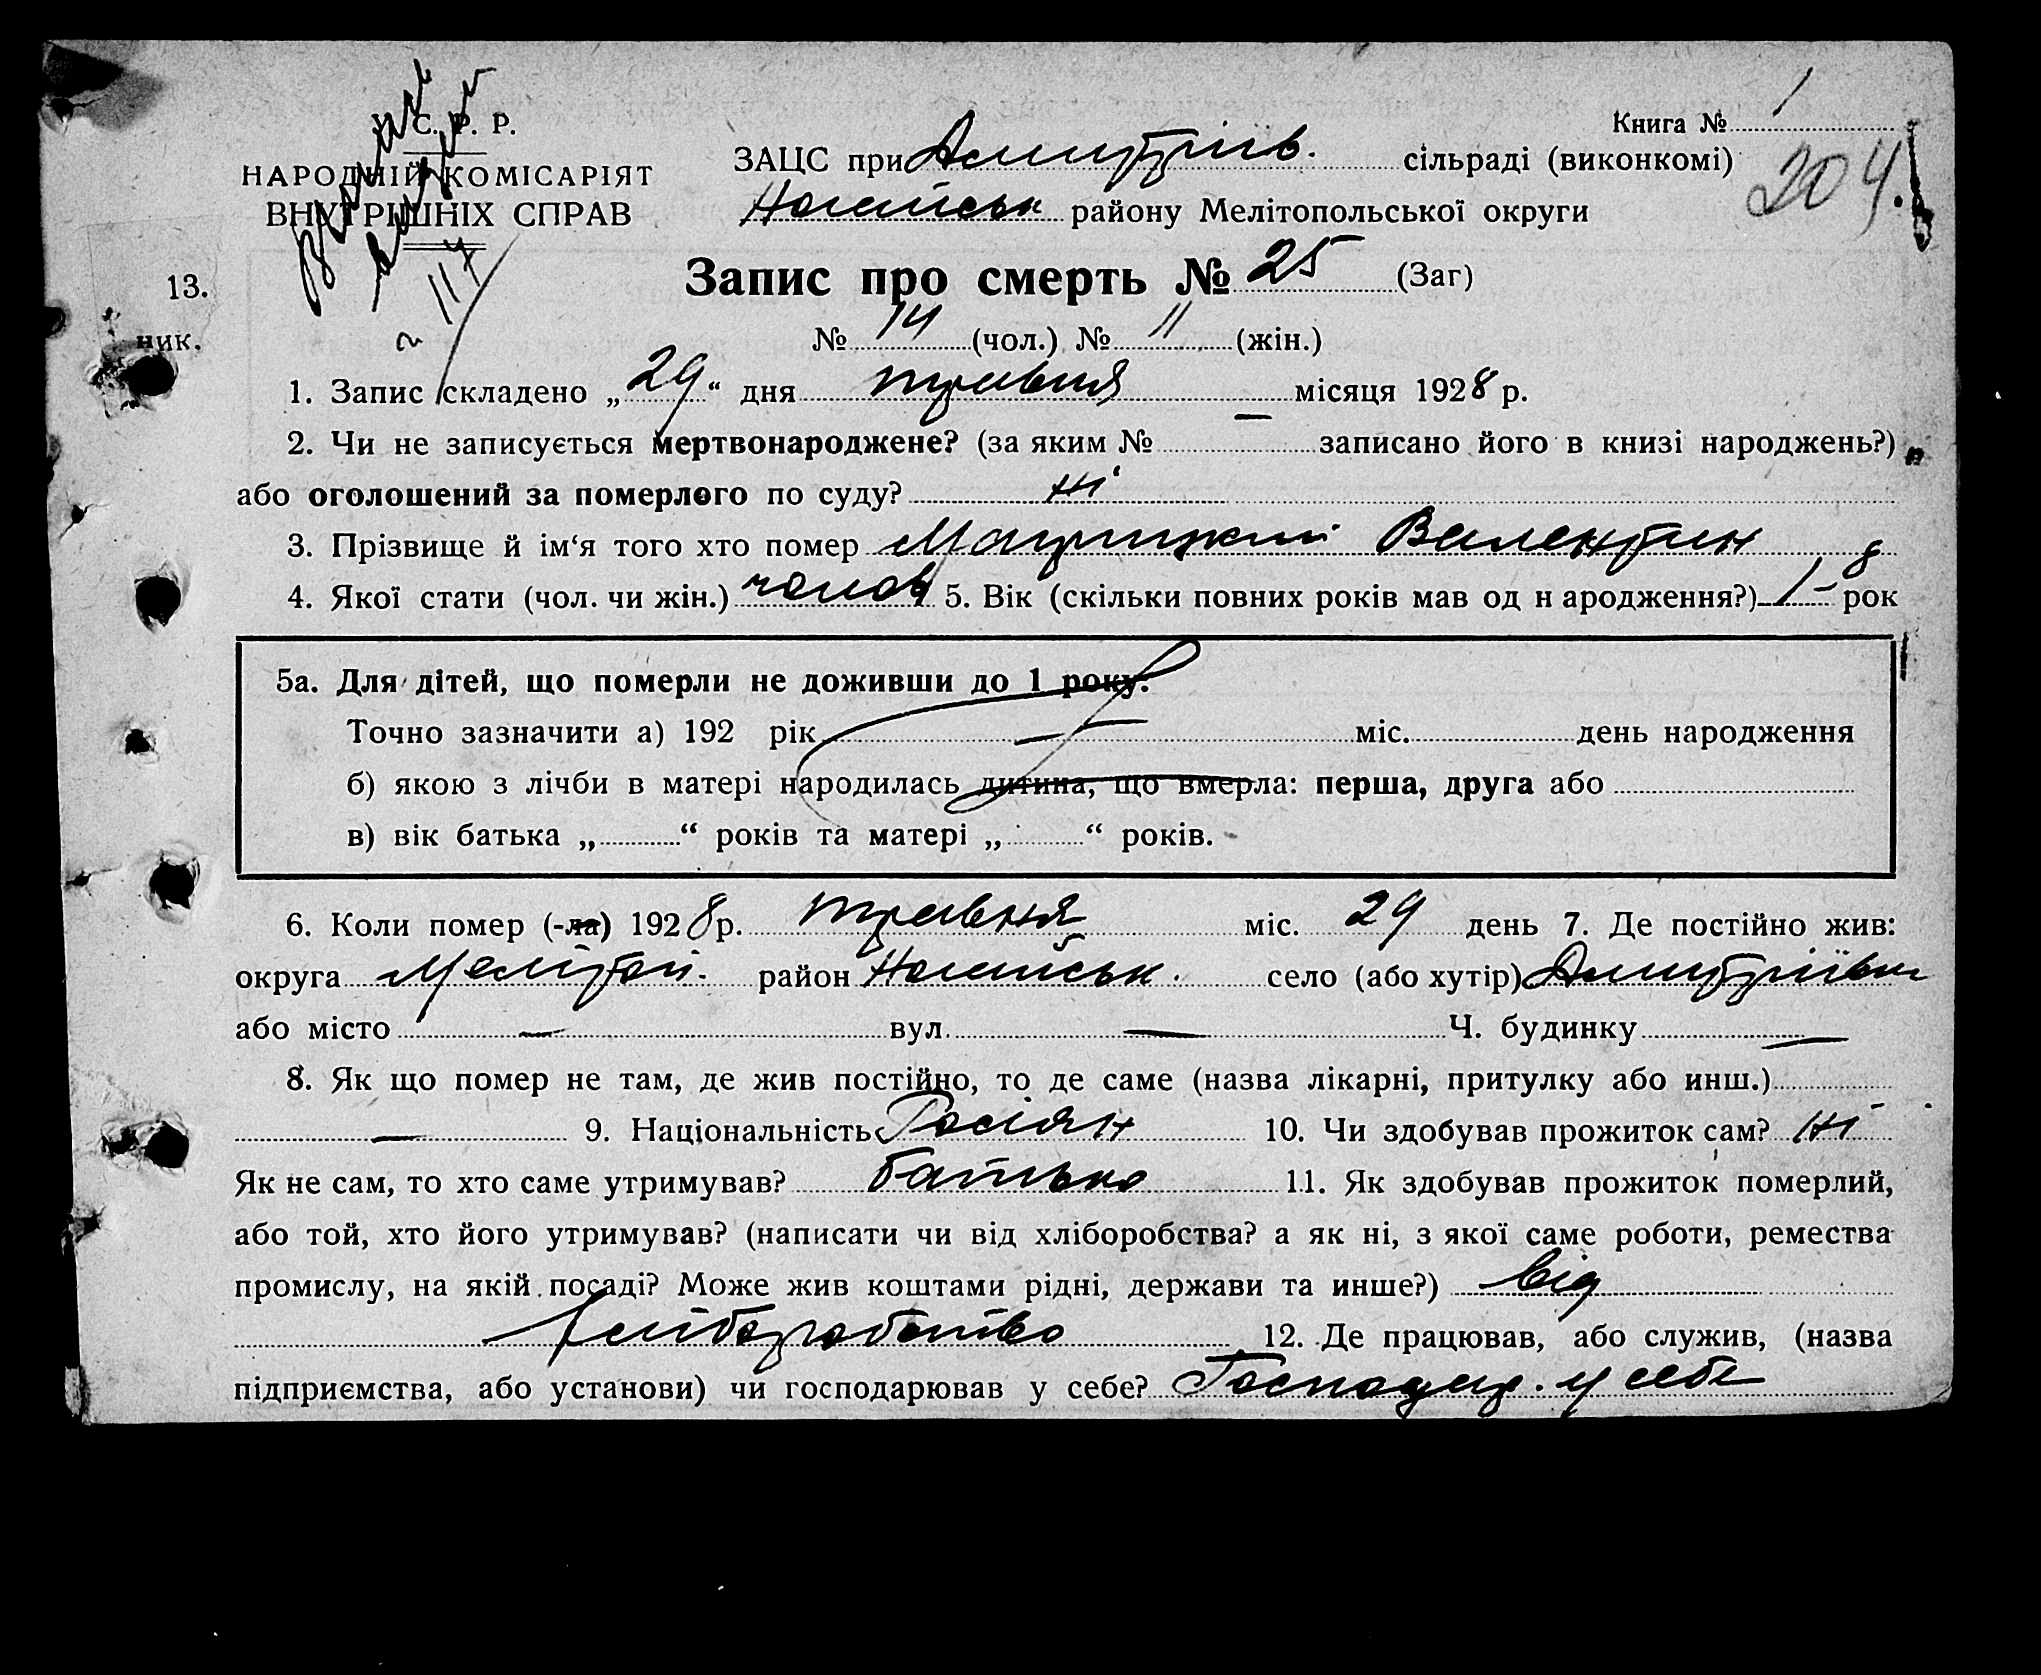 Книга № 1
С. Р. Р.
ЗАЦС при Дмитрїів. сільраді (виконкомі)
204.
НАРОДНІЙ КОМІСАРІЯТ
Ногайськ району Мелітопольської округи
ВНУТРІШНІХ СПРАВ
117
13.
Запис про смерть № 25 (Заг)
ник.
№ 14 (чол.) № 11 (жін.)
1. Запис складено „29“ дня травня місяця 1928 р.
2. Чи не записується мертвонароджене? (за яким № — записано його в книзі народжень?)
або оголошений за померлого по суду? ні
3. Прізвище й ім‘я того хто помер Валентин
4. Якої стати (чол. чи жін.) чолов 5. Вік (скільки повних років мав од н ародження?) 1 - рок
5а. Для дітей, що померли не доживши до 1 року.
Точно зазначити а) 192 рік — міс. день народження
б) якою з лічби в матері народилась дитина, що вмерла: перша, друга або
в) вік батька „ “ років та матері „ “ років.
6. Коли помер (-ла) 1928 р. травня міс. 29 день 7. Де постійно жив:
округа Мелітоп. район Ногайськ. село (або хутір) Дмитріївка
або місто — вул. — Ч. будинку —
8. Як що помер не там, де жив постійно, то де саме (назва лікарні, притулку або инш.)
— 9. Національність Росіян 10. Чи здобував прожиток сам? Ні
Як не сам, то хто саме утримував? батько 11. Як здобував прожиток померлий,
або той, хто його утримував? (написати чи від хліборобства? а як ні, з якої саме роботи, ремества
промислу, на якій посаді? Може жив коштами рідні, держави та инше?) від
хліборобство 12. Де працював, або служив, (назва
підприємства, або установи) чи господарював у себе? Господар. у себе